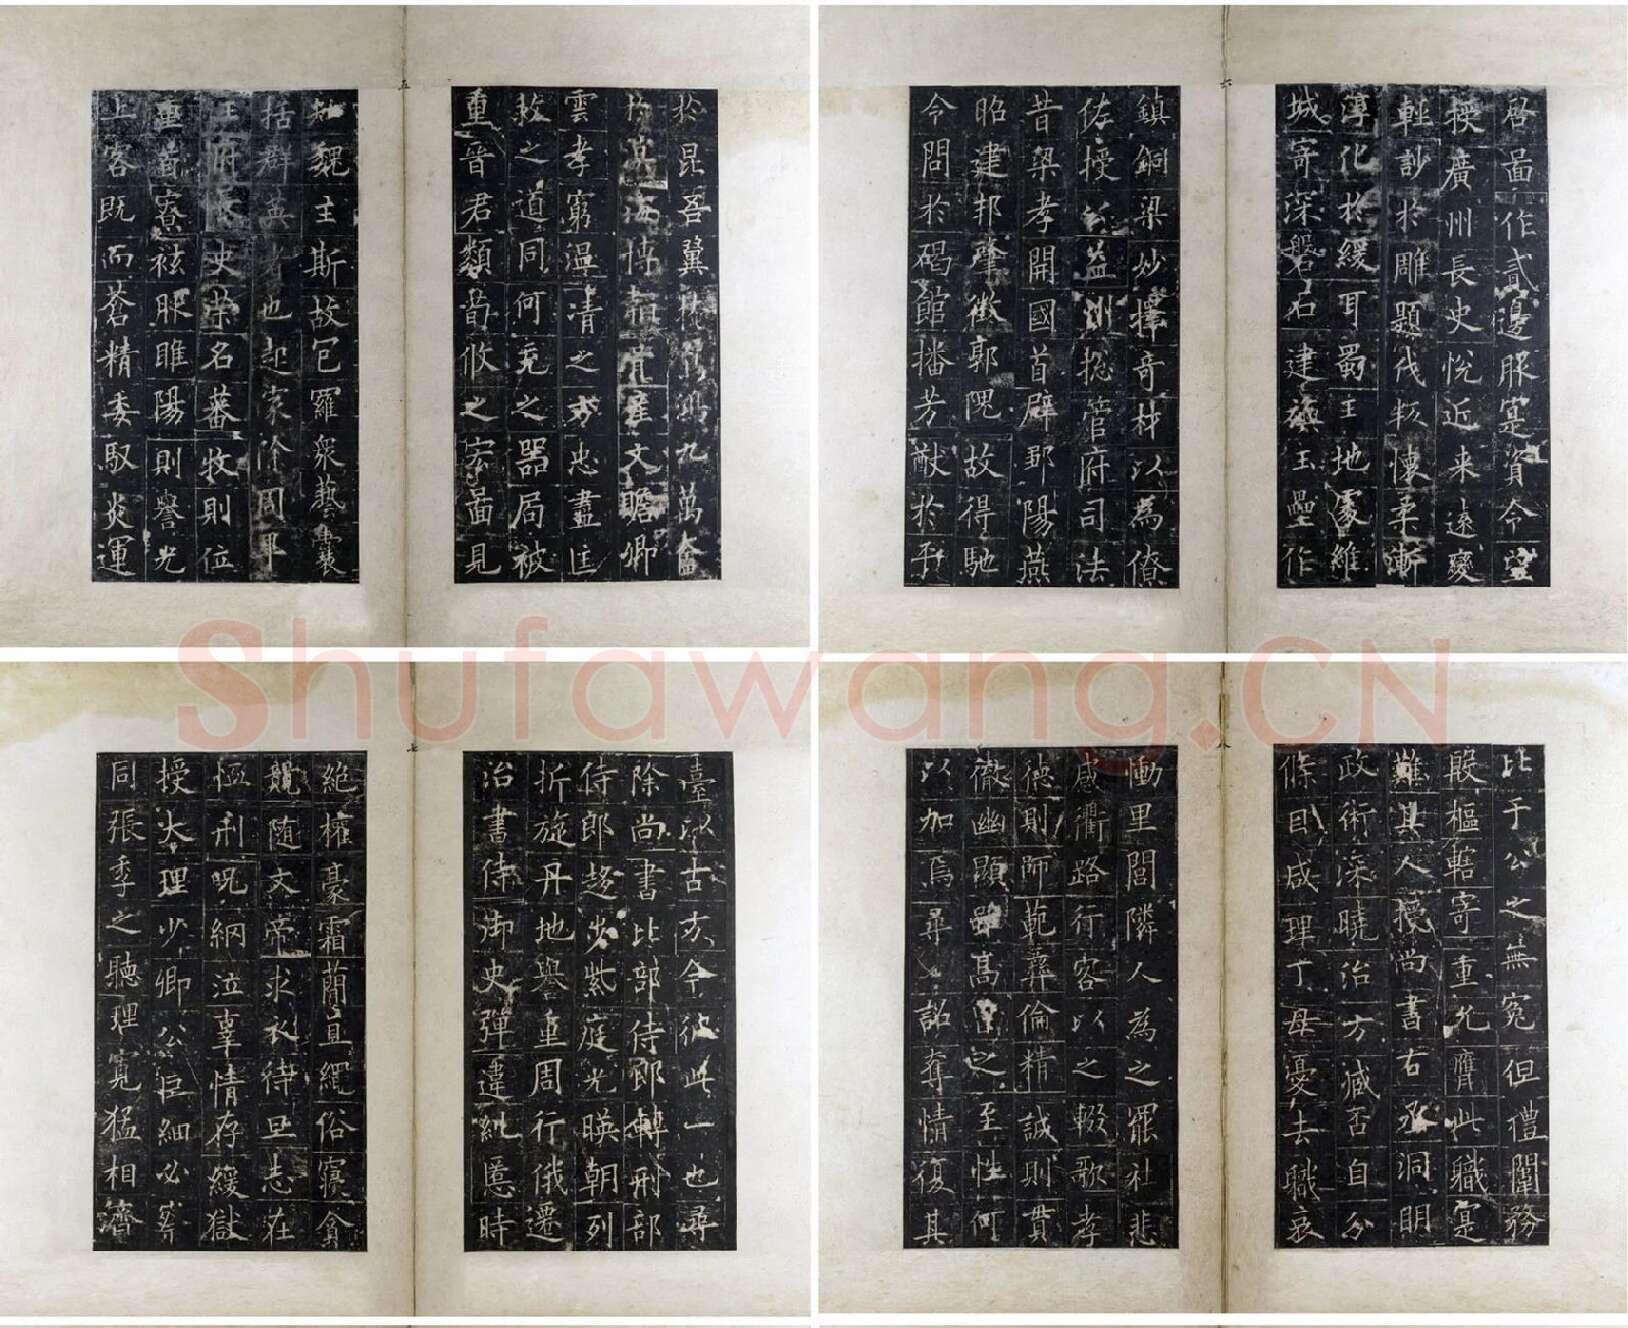 於昆吾翼九萬公
海博產文贍卿
雲孝窮溫凊之方忠盡匡
救之道同何充之器局被
重晉君類荀攸之宏圖見
知魏主斯故包羅衆藝囊
括群英者也起家除周畢
王府長史榮名蕃牧則位
重首寮袨服睢陽則譽光
上客既而蒼精委馭炎運
五
啓圖作貳邊服寔資令望
授廣州長史悅近來遠變
輕訬於雕題伐叛懷柔漸
淳化於緩耳蜀王地處維
城寄深磐石建旟玉壘作
鎮銅梁妙擇奇材以為僚
佐授公益州摠管府司法
昔梁孝開國首辟鄒陽燕
昭建邦肇徵郭隗故得馳
令問於碣館播芳猷於平
六
臺以古方今彼此一也尋
除尚書比部侍郎轉刑部
侍郎趍步紫庭光暎朝列
折旋丹地譽重周行俄遷
治書侍御史彈違糾慝時
絕權豪霜簡直繩俗寢貪
競隨文帝求衣待旦志在
恤刑咒網泣辜情存緩獄
授大理少卿公巨細必察
同張季之聽理寬猛相濟
七
比于公之無冤但禮闈務
殷樞轄寄重允膺此職寔
難其人授尚書右丞洞明
政術深曉治方臧否自分
條目咸理丁母憂去職哀
慟里閭隣人為之罷社悲
感衢路行客以之輟歌孝
德則師範彝倫精誠則貫
徹幽顯雖高之至性何
以加焉尋詔奪情復其
八
Shufawang.CN